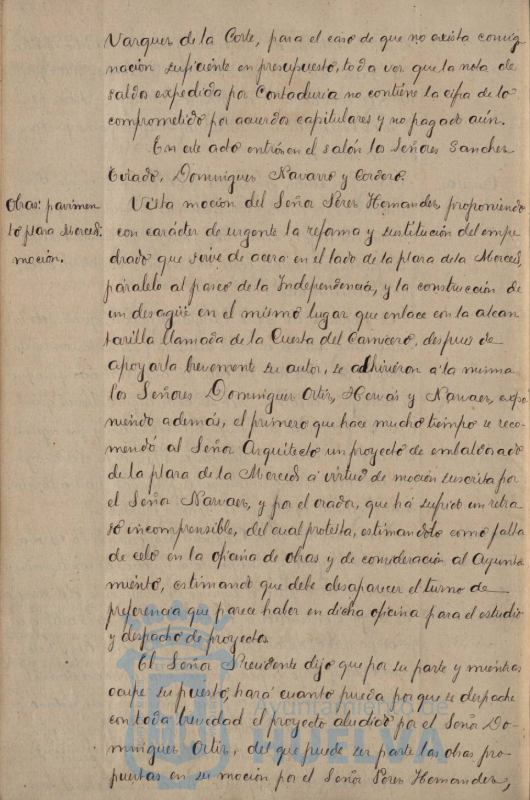 Varquer de la Corte, para el caso de que no exista consig
nación suficiente en presupuesto, toda vez que la nota de
saldos expedida por Contaduria no contiene la cifra de lo
comprometido por acuerdos capitulares y no pagado aún.
En este acto entrón en el salón los Señores Sanchez
Tirado, Dominguez Navarro y Cordero.
Obras: pavimen
to plaza Merced:
moción.
Vista moción del Señor Perez Hernandez, proponiendo
con carácter de urgente la reforma y sustitución del empe
drado que sirve de acera en el lado de la plaza de la Merced,
paralelo al paseo de la Independencia, y la construcción de
un desagüe en el mismo lugar que enlace con la alcan
tarilla llamada de la Cuesta del Carnicero, despues de
apoyarla brevemente su autor, se adhirieron á la misma
los Señores Dominguez Ortiz, Hervás y Narvaez, expo
niendo además, el primero que hace mucho tiempo se reco
mendó al Señor Arquitecto un proyecto de embaldosado
de la plaza de la Merced á virtud de moción suscrita por
el Señor Narvaez, y por el orador, que há sufrido un retra
so incomprensible, del cual protesta, estimandolo como falta
de celo en la oficina de obras y de consideración al Ayunta
miento, estimando que debe desaparecer el turno de
preferencia que parece haber en dicha oficina para el estudio
y despacho de proyectos.
El Señor Presidente dijo que por su parte y mientras
ocupe su puesto, hará cuanto pueda por que se despache
con toda brevedad el proyecto aludido por el Señor Do-
minguez Ortiz, del que puede ser parte las obras pro-
puestas en su moción por el Señor Perez Hernandez,
Ayuntamiento de
HUELVA